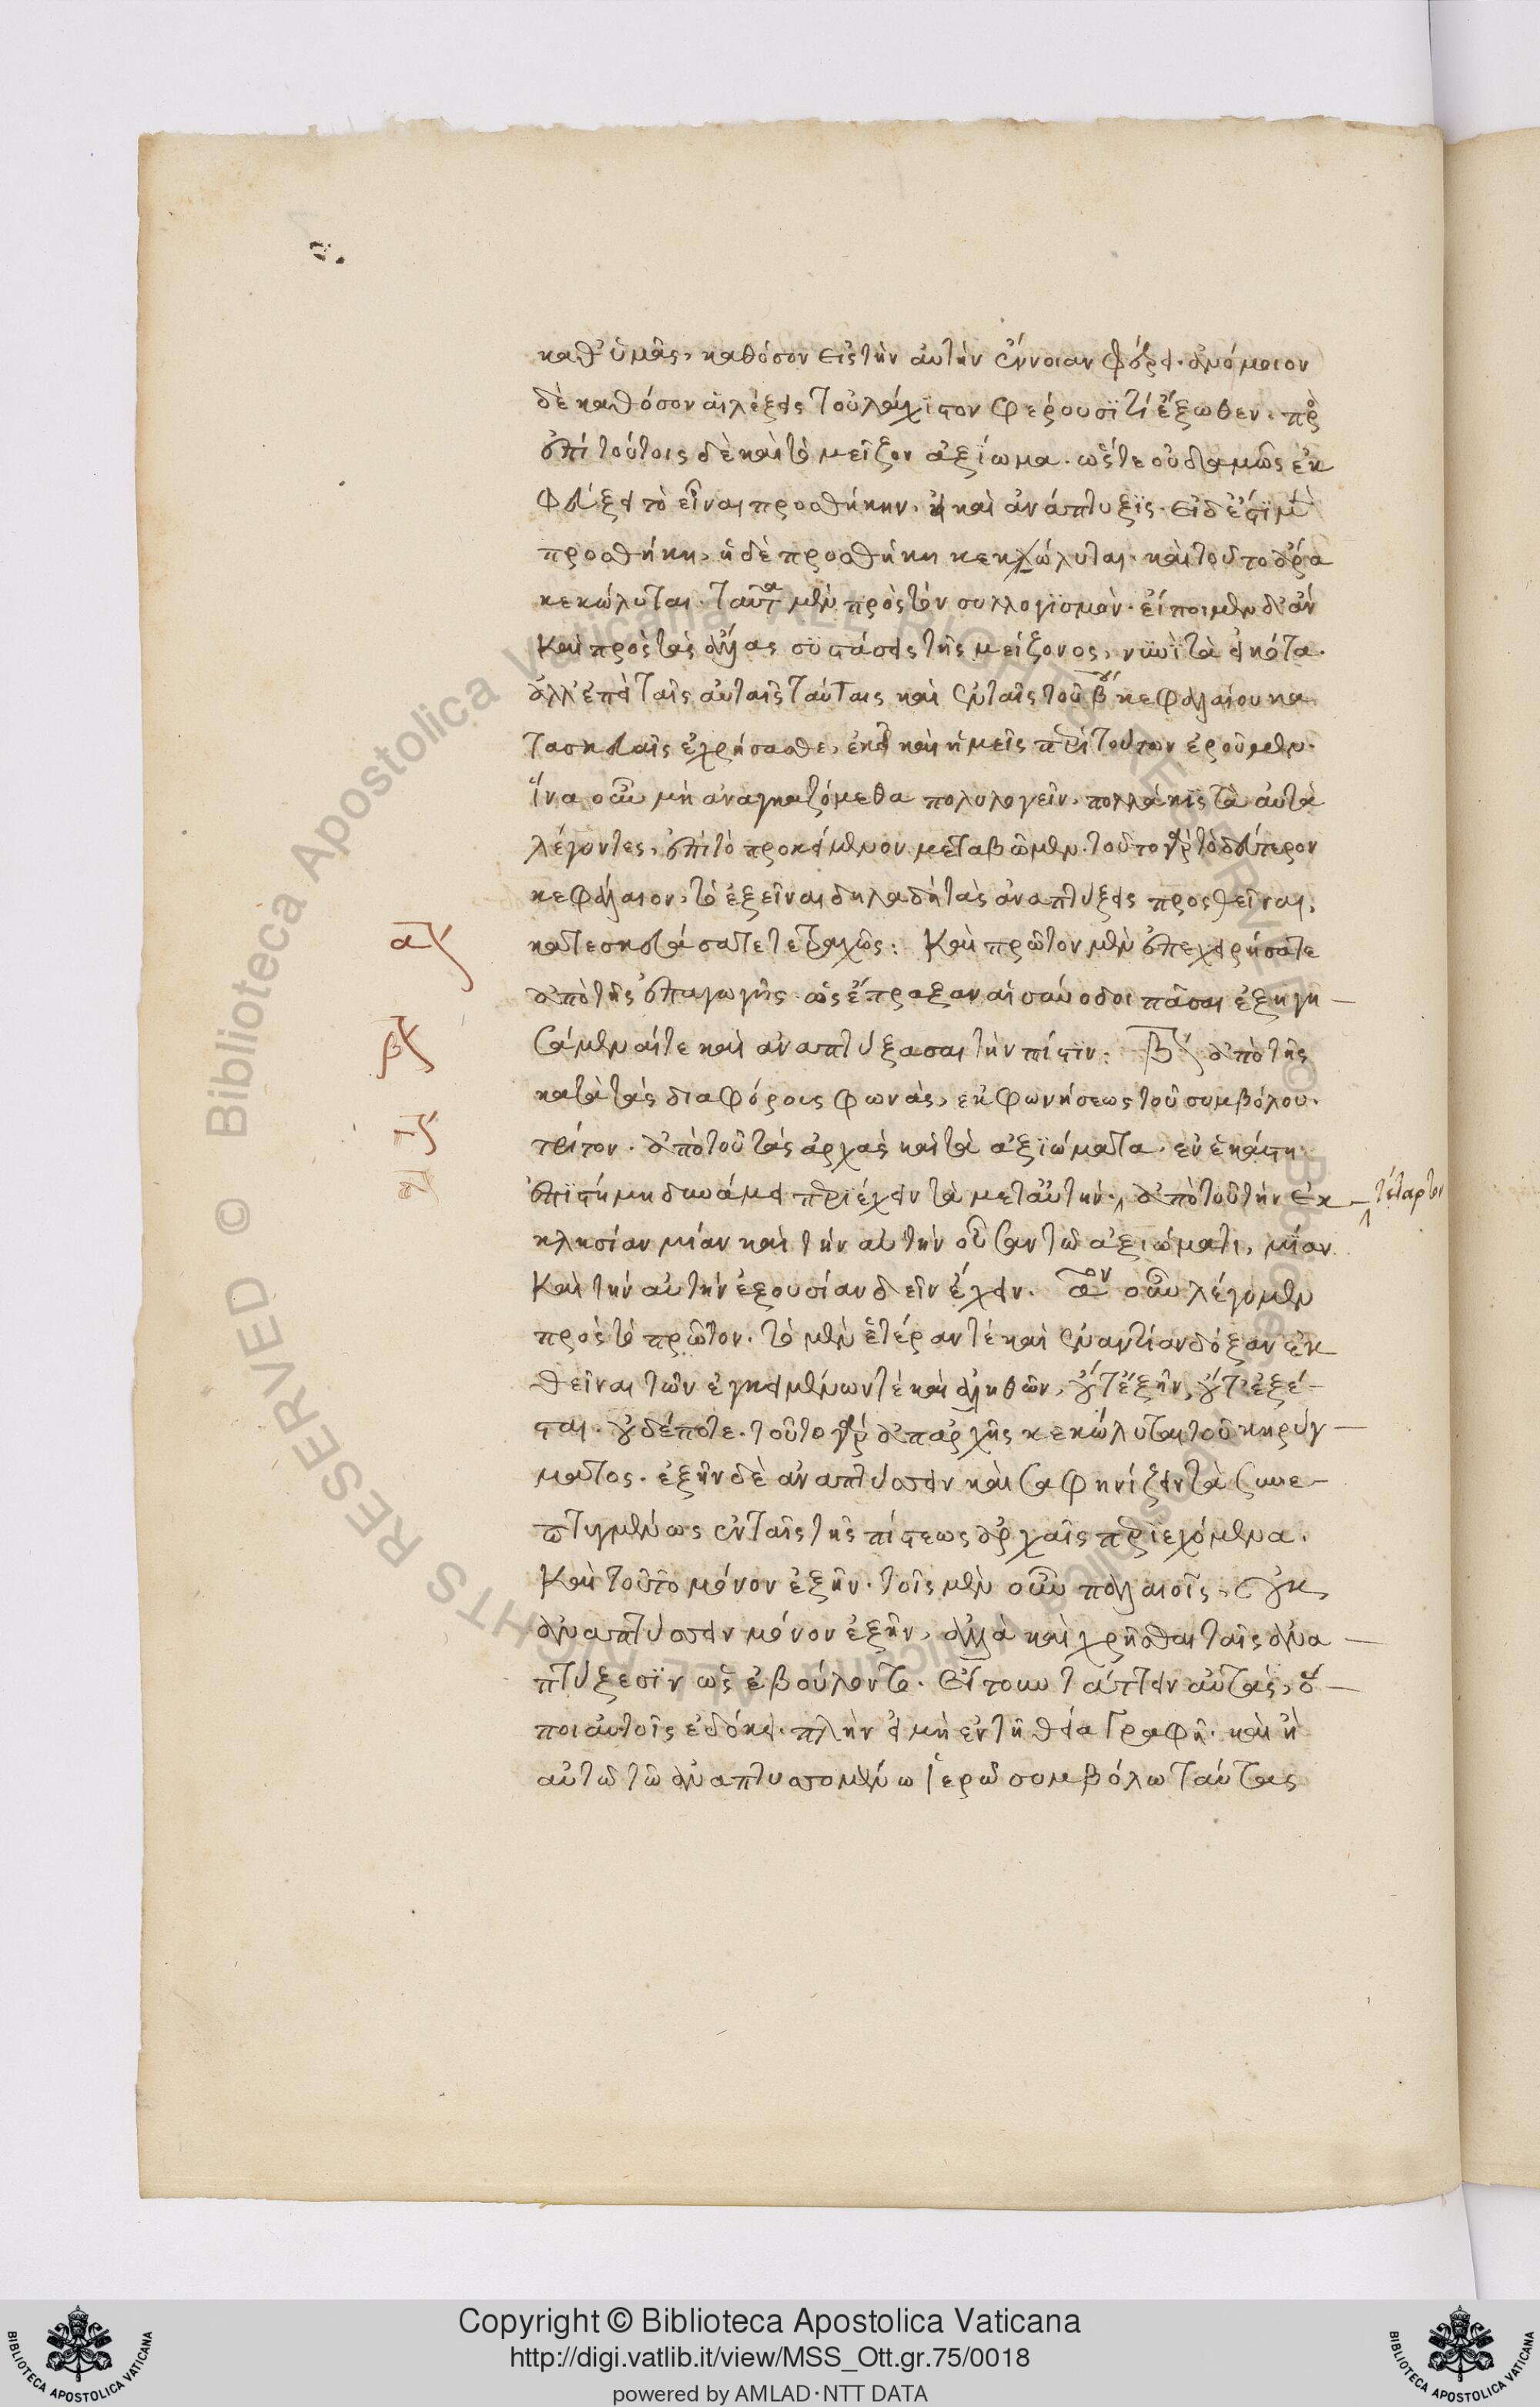 καθ' ὑμᾶς, καθόσον εἰς τὴν αὐτὴν ἔννοιαν φέρει. ἀνόμοιον
δὲ καθόσον αἱ λέξεις τοὐλάχϊστον φέρουσϊ τί ἔξωθεν. πρὸς
ἐπὶ τούτοις δὲ καὶ τὸ μεῖζον ἀξίωμα. ὥστε οὐδαμῶς ἐκ
φεύξει τὸ εἶναι προσθήκην, ἡ καὶ ἀνάπτυξϊς. εἰ δέ ἐστϊ μὲν
προσθήκη, ἡ δὲ προσθήκη κεκώλυται. καὶ τοῦτο ἄρα
κεκώλυται. ταῦτα μὲν πρὸς τὸν συλλογϊσμὸν. εἴποιμεν δ' ἂν
καὶ πρὸς τὰς ἄλλας συστάσεις τῆς μείζονος, νυνὶ τὰ εἰκότα.
ἀλλ' ἐπεὶ ταῖς αὐταῖς ταύταις καὶ ἐν ταῖς τοῦ β κεφαλαίου κα
τασκευαῖς ἐχρήσασθε, ἐκεῖ καὶ ἡμεῖς περὶ τούτων ἐροῦμεν.
ἵνα οὖν μὴ ἀναγκαζόμεθα πολυλογεῖν, πολλάκϊς τὰ αὐτὰ
λέγοντες, ἐπὶ τὸ προκείμενον μεταβῶμεν. τοῦτο γὰρ τὸ δεύτερον
κεφάλαιον, τὸ ἐξεῖναι δηλαδὴ τὰς ἀναπτύξεις προσθεῖναι,
κατεσκευάσατε τετραχῶς: Καὶ πρῶτον μὲν ἐπεχειρήσατε
ἀπὸ τῆς ἐπαγωγῆς. ὡς ἔπραξαν αἱ σύνοδοι πᾶσαι ἐξηγη
σάμεναί τε καὶ ἀναπτύξασαι τὴν πίστϊν: β ἀπὸ τῆς
κατὰ τὰς διαφόροις φωνὰς, ἐκφωνήσεως τοῦ συμβόλου.
τρίτον. ἀπὸ τοῦ τὰς ἀρχὰς καὶ τὰ ἀξϊώματα, ἐν ἑκάστη
ἐπϊστήμη δυνάμει περϊέχειν τὰ μετ' αὐτήν. ἀπὸ τοῦ τὴν ἐκ
τέταρτον
κλησίαν μίαν καὶ τὴν αὐτὴν οὖσαν τῶ ἀξιώματι, μίαν
καὶ τὴν αὐτὴν ἐξουσίαν δεῖν ἔχειν. αον οὖν λέγομεν
πρὸς τὸ πρῶτον. τὸ μὲν ἑτέραν τὲ καὶ ἐναντίαν δόξαν ἐκ
θεῖναι τῶν ἐγκειμένων τὲ καὶ ἀληθῶν, οὔτ' ἐξῆν, οὔτ' ἐξέ
σται. οὐδέποτε. τοῦτο γὰρ ἀπαρχῆς κεκώλυται τοῦ κηρύγ
ματος. ἐξῆν δὲ ἀναπτύσσειν καὶ σαφηνίζειν τὰ συνε
πτυγμένως ἐν ταῖς τῆς πίστεως ἀρχαῖς περϊεχόμενα.
Καὶ τοῦτο μόνον ἐξῆν. τοῖς μὲν οὖν παλαιοῖς, οὐκ
ἀναπτύσσειν μόνον ἐξῆν, ἀλλὰ καὶ χρῆσθαι ταῖς ἀνα
πτύξεσϊν ὡς ἐβούλοντο. εἴτουν τάττειν αὐτὰς, ὅ
ποι αὐτοῖς ἐδόκει. πλὴν εἰ μὴ ἐν τῆ θεία Γραφῆ. καὶ ἢ
αὐτῶ τῶ ἀναπτυσσομένω ἱερῶ συμβόλω ταύτας
α
β
γ
Copyright © Biblioteca Apostolica Vaticana
http://digi.vatlib.it/view/MSS_Ott.gr.75/0018
powered by AMLAD·NTT DATA